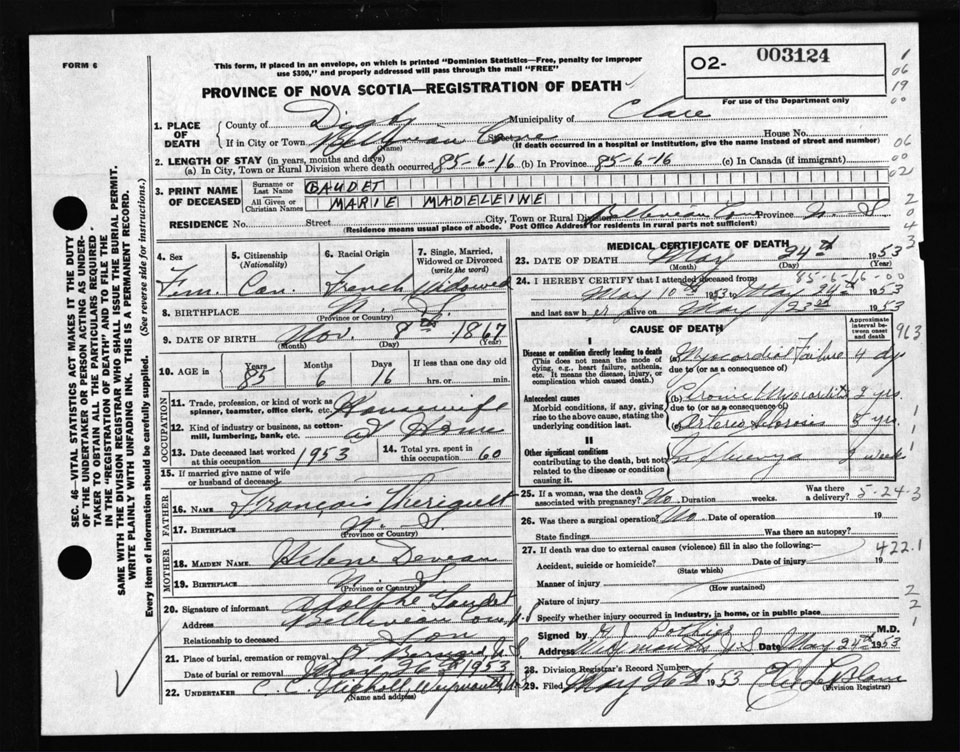 FORM 6
This form, if placed in an envelope, on which is printed "Dominion Statistics—Free, penalty for improper
use $300," and properly addressed will pass through the mail "FREE"
02- 003124
For use of the Department only
PROVINCE OF NOVA SCOTIA—REGISTRATION OF DEATH
1. PLACE OF DEATH
County of Digby Municipality of Clare
If in City or Town Cove Street House No.
(Name) (If death occurred in a hospital or Institution, give name instead of street and number)
2. LENGTH OF STAY (in years, months and days)
(a) In City, Town or Rural Division where death occurred 85-6-16 (b) In Province 85-6-16 (c) In Canada (if immigrant)
3. PRINT NAME OF DECEASED
Surname or Last Name GAUDET
All Given or Christian Names MARIE MADELEINE
RESIDENCE No. Street City, Town or Rural Division Province N. S.
(Residence means usual place of abode. Post Office Address for residents in rural parts not sufficient)
4. Sex Fem.
5. Citizenship (Nationality) Can.
6. Racial Origin French
7. Single, Married, Widowed or Divorced (write the word) Widowed
8. BIRTHPLACE N. S.
(Province or Country)
9. DATE OF BIRTH Nov. 8th 1867
(Month) (Day) (Year)
10. AGE in Years 85 Months 6 Days 16 If less than one day old hrs. or min.
OCCUPATION
11. Trade, profession, or kind of work as spinner, teamster, office clerk, etc. Housewife
12. Kind of industry or business, as cotton-mill, lumbering, bank, etc. At Home
13. Date deceased last worked at this occupation 1953
14. Total yrs. spent in this occupation 60
15. If married give name of wife or husband of deceased
FATHER
16. NAME Francois Theriault
17. BIRTHPLACE N. S.
(Province or Country)
MOTHER
18. MAIDEN NAME Helene Deveau
19. BIRTHPLACE N. S.
(Province or Country)
20. Signature of informant Adolphe Gaudet
Address Belliveau Cove, N.S.
Relationship to deceased Son
21. Place of burial, cremation or removal St. Bernard N.S.
Date of burial or removal May 26th 1953
22. UNDERTAKER C. C. Nicholl, Weymouth N.S.
MEDICAL CERTIFICATE OF DEATH
23. DATE OF DEATH May 24th 1953
(Month) (Day) (Year)
85-6-16-00
24. I HEREBY CERTIFY that I attended deceased from
May 10th 1953 to May 24th 1953
and last saw her alive on May 23rd 1953
CAUSE OF DEATH
Approximate interval between onset and death
963
I
Disease or condition directly leading to death
(This does not mean the mode of dying, e.g., heart failure, asthenia, etc. It means the disease, injury, or complication which caused death.)
(a) Myocardial Failure 4 dys
due to (or as a consequence of)
Antecedent causes
Morbid conditions, if any, giving rise to the above cause, stating the underlying condition last.
(b) Chronic Myocarditis 2 yrs.
due to (or as a consequence of)
(c) Arterio Sclerosis 5 yrs.
II
Other significant conditions
contributing to the death, but not related to the disease or condition causing it.
Influenza 2 week
25. If a woman, was the death associated with pregnancy? No Duration weeks. Was there a delivery?
5-24-3
26. Was there a surgical operation? No Date of operation 19
State findings Was there an autopsy?
27. If death was due to external causes (violence) fill in also the following:—
422.1
Accident, suicide or homicide? Date of injury 19
(State which)
Manner of injury
(How sustained)
Nature of injury
Specify whether injury occurred in industry, in home, or in public place
Signed by Pothier M.D.
Address Weymouth N.S. Date May 24th 1953
28. Division Registrar's Record Number
29. Filed May 26th 1953
(Division Registrar)
SEC. 46—VITAL STATISTICS ACT MAKES IT THE DUTY
OF THE UNDERTAKER OR PERSON ACTING AS UNDER-
TAKER TO OBTAIN ALL THE PARTICULARS REQUIRED
IN THE "REGISTRATION OF DEATH" AND TO FILE THE
SAME WITH THE DIVISION REGISTRAR WHO SHALL ISSUE THE BURIAL PERMIT.
WRITE PLAINLY WITH UNFADING INK. THIS IS A PERMANENT RECORD.
Every item of information should be carefully supplied. (See reverse side for instructions.)
1
06
19
00
06
00
02
2
0
4
3
1
1
1
2
2
1